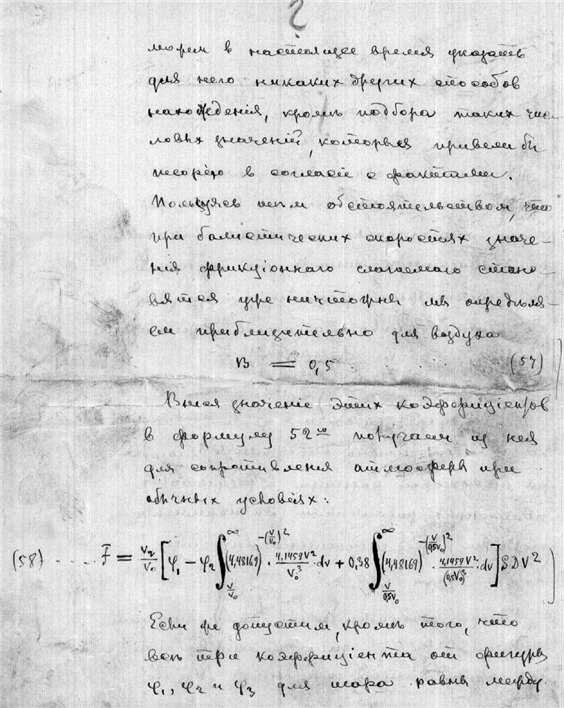 2
можем в настоящее время указать
для него никаких других способов
нахождения, кромѣ подбора таких чис-
ловых значений, которыя привели бы
теорію в согласіе с фактами.
Пользуясь тем обстоятельством, что
при балистических скоростях значе-
нія фрикціоннаго слагаемаго стано-
вятся уже ничтожны мы опредѣля-
ем приблизительно для воздуха
B = 0,5 (57)
Внося значеніе этих коэффиціентов
в формулу 52ую получаем из нея
для сопротивленія атмосферы при
обычных условіях:
(58) .... F = V₂/V₀ [φ₁ − φ₂ ∫_{V/V₀}^{∞} (4,48169)^{−(V/V₀)²} · 4,1459V²/V₀³ dv + 0,38 ∫_{V/0,5V₀}^{∞} (4,48169)^{−(V/0,5V₀)²} · 4,1459V²/(0,5V₀)³ dv] SDV²
Если же допустим, кромѣ того, что
всѣ три коэффиціента от фигуры
φ₁, φ₂ и φ₃ для шара равны между